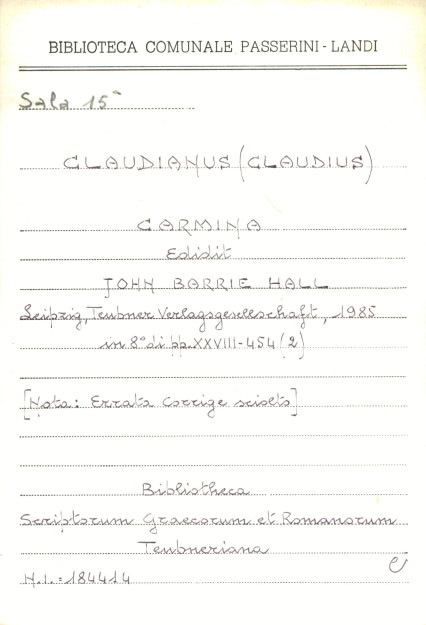 BIBLIOTECA COMUNALE PASSERINI - LANDI
Sala 15ª
CLAUDIANUS (CLAUDIUS)
CARMINA
Edidit
JOHN BARRIE HALL
Leipzig, Teubner Verlagsgesellschaft, 1985
in 8° di pp. XXVIII-454 (2)
[Nota: Errata Corrige sciolto]
Bibliotheca
Scriptorum Graecorum et Romanorum
Teubneriana
N.I. = 184414